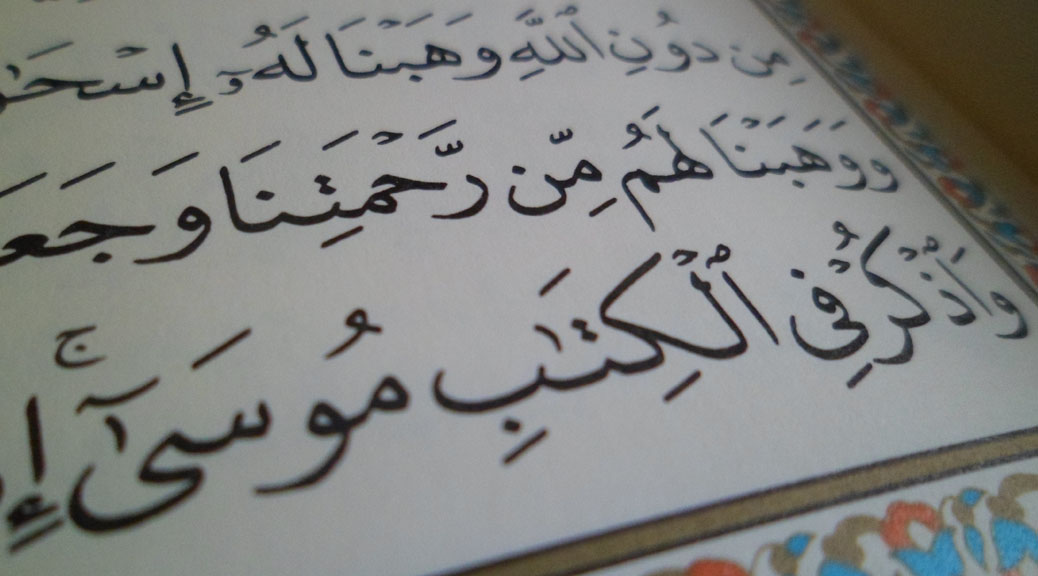 مِن دُونِ ٱللَّهِ وَهَبْنَا لَهُۥٓ إِسْحَـٰ
وَوَهَبْنَا لَهُم مِّن رَّحْمَتِنَا وَجَعَ
وَٱذْكُرْ فِى ٱلْكِتَـٰبِ مُوسَىٰٓ ۚ إِ